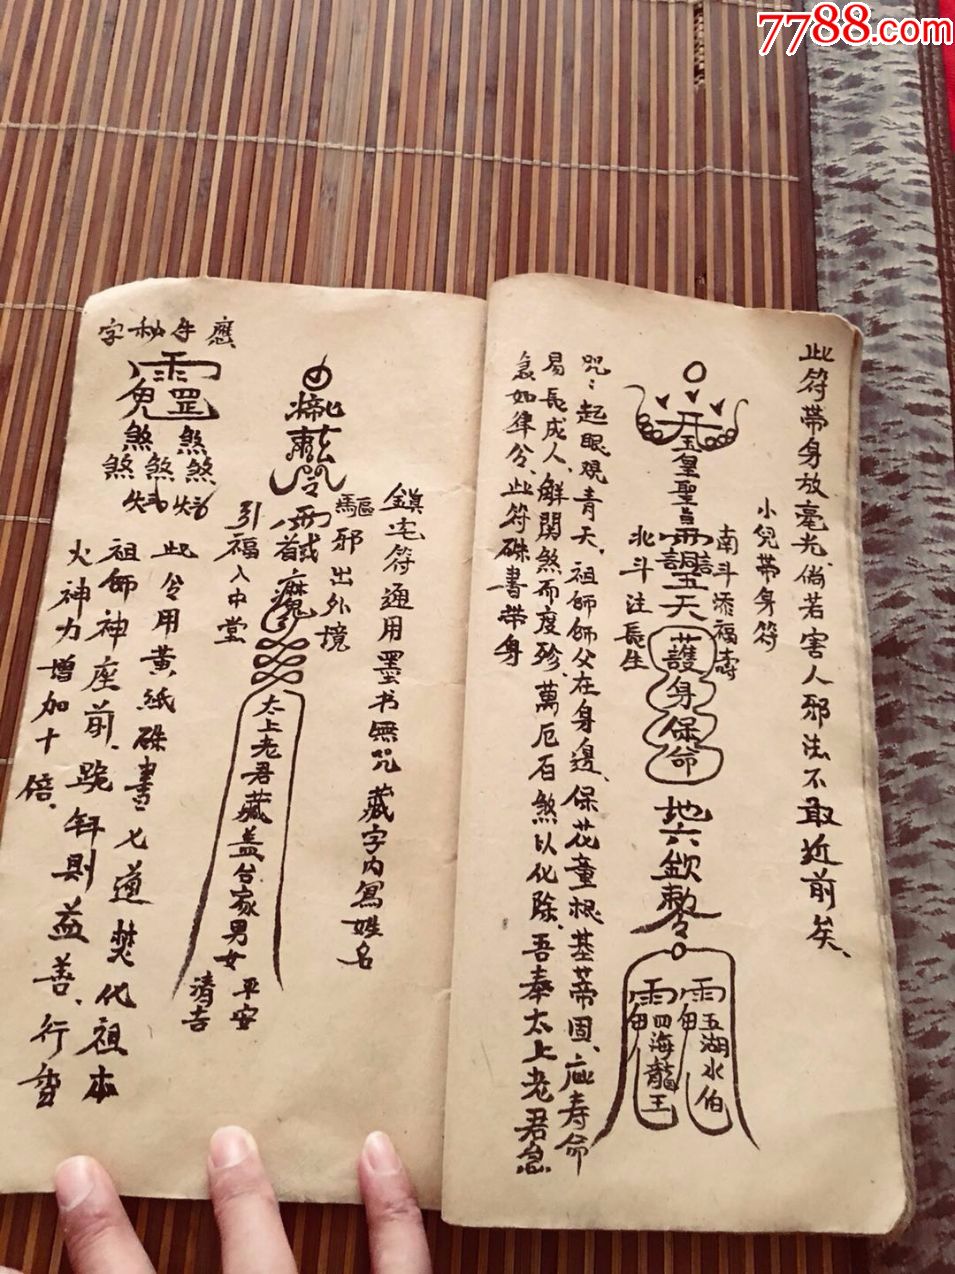 7788.com
此符带身放毫光倘若害人邪法不敢近前矣、
小兒带身符
南斗添福壽
開
玉皇聖旨
天
護身保命
地六欽敕令
五湖水伯
四海龍王
北斗注長生
咒:起眼覌青天、祖師師父在身邊、保花童根基蒂固、延寿命
易長成人、解関煞而度珍、萬厄百煞以化除、吾奉太上老君急
急如律令、此符硃書带身
鎮宅符通用墨书無咒藏字内寫姓名
驅邪出外境
引福入中堂
太上老君藏盖合家男女
平安
清吉
應手秘字
煞煞煞
煞煞
此令用黄紙硃書七道焚化祖本
祖師神座前、跪
火神力增加十倍、